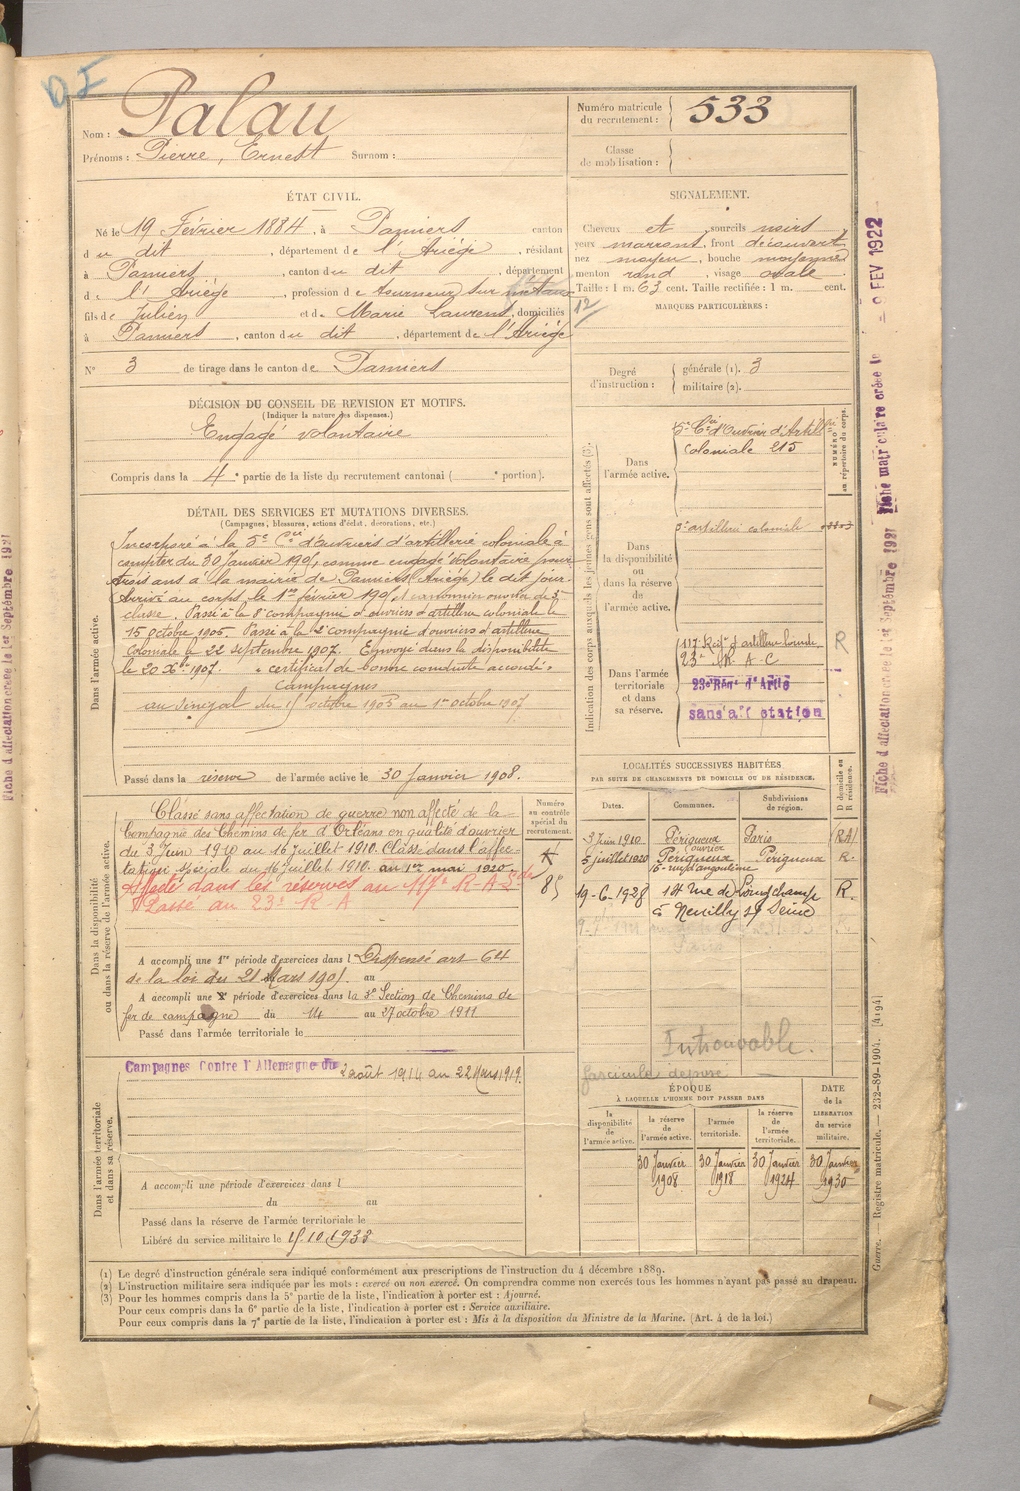 D I
Nom : Palau
Prénoms : Pierre, Ernest Surnom :
Numéro matricule du recrutement : 533
Classe de mobilisation :
ÉTAT CIVIL.
Né le 19 Février 1884, à Pamiers canton
du dit, département de l'Ariège, résidant
à Pamiers, canton du dit, département
de l'Ariège, profession de tourneur sur métaux
fils de Julien et de Marie Laurens, domiciliés
à Pamiers, canton du dit, département de l'Ariège
N° 3 de tirage dans le canton de Pamiers
SIGNALEMENT.
Cheveux et sourcils noirs
yeux marrons, front découvert
nez moyen, bouche moyenne
menton rond, visage ovale
Taille : 1 m. 63 cent. Taille rectifiée : 1 m. cent.
12
MARQUES PARTICULIÈRES :
Degré d'instruction : générale (1). 3
militaire (2).
DÉCISION DU CONSEIL DE REVISION ET MOTIFS.
(Indiquer la nature des dispenses.)
Engagé volontaire
Compris dans la 4e partie de la liste du recrutement cantonal ( e portion).
DÉTAIL DES SERVICES ET MUTATIONS DIVERSES.
(Campagnes, blessures, actions d'éclat, décorations, etc.)
Dans l'armée active.
Incorporé à la 5e Cie d'ouvriers d'artillerie coloniale à
compter du 30 Janvier 1905, comme engagé volontaire pour
trois ans à la mairie de Pamiers (Ariège) le dit jour.
Arrivé au corps le 1er février 1905, canonnier ouvrier de 2e
classe. Passé à la 8e compagnie d'ouvriers d'artillerie coloniale le
15 octobre 1905. Passé à la 2e compagnie d'ouvriers d'artillerie
Coloniale le 22 septembre 1907. Envoyé dans la disponibilité
le 20 Xbre 1907. « certificat de bonne conduite accordé »
Campagnes
au Sénégal du 15 octobre 1905 au 1er octobre 1907
Passé dans la réserve de l'armée active le 30 Janvier 1908.
Indication des corps auxquels les jeunes gens sont affectés (3).
NUMÉRO au répertoire du corps.
Dans l'armée active.
5e Cie d'Ouvriers d'Artillie
Coloniale 215
Dans la disponibilité ou dans la réserve de l'armée active.
3e artillerie coloniale
Dans l'armée territoriale et dans sa réserve.
117e Regt d'artillerie lourde R
23e R. A. C
23e Régt d'Artie
sans affectation
LOCALITÉS SUCCESSIVES HABITÉES
PAR SUITE DE CHANGEMENTS DE DOMICILE OU DE RÉSIDENCE.
Dates. Communes. Subdivisions de région. D domicile ou R résidence.
3 Juin 1910 Périgueux Paris (RA)
ouvrier
5 juillet 1920 Périgueux Périgueux R.
rue d'angoulême
19-6-1928 184 rue de Longchamp R.
à Neuilly s/ Seine
Paris
Introuvable.
fascicule déposé
Dans la disponibilité ou dans la réserve de l'armée active.
Numéro au contrôle spécial du recrutement.
Classé sans affectation de guerre non affecté de la
Compagnie des Chemins de fer d'Orléans en qualité d'ouvrier
du 3 Juin 1910 au 16 Juillet 1910. Classé dans l'affec-
tation spéciale du 16 juillet 1910. au 1er mai 1920
Affecté dans les réserves au 117e R.A.L.
Passé au 23e R A
85
A accompli une 1re période d'exercices dans l Dispensé art 64
de la loi du 21 Mars 1905. au
A accompli une 2e période d'exercices dans la 3e Section de Chemins de
fer de campagne du 14 au 27 octobre 1911
Passé dans l'armée territoriale le
Dans l'armée territoriale et dans sa réserve.
Campagnes Contre l'Allemagne du 2 août 1914 au 22 Mars 1919.
A accompli une période d'exercices dans l
du au
Passé dans la réserve de l'armée territoriale le
Libéré du service militaire le 15.10.1933
ÉPOQUE
À LAQUELLE L'HOMME DOIT PASSER DANS
la disponibilité de l'armée active. la réserve de l'armée active. l'armée territoriale. la réserve de l'armée territoriale.
DATE de la LIBÉRATION du service militaire.
30 Janvier 1908 30 Janvier 1918 30 Janvier 1924 30 Janvier 1930
(1) Le degré d'instruction générale sera indiqué conformément aux prescriptions de l'instruction du 4 décembre 1889.
(2) L'instruction militaire sera indiquée par les mots : exercé ou non exercé. On comprendra comme non exercés tous les hommes n'ayant pas passé au drapeau.
(3) Pour les hommes compris dans la 5e partie de la liste, l'indication à porter est : Ajourné.
Pour ceux compris dans la 6e partie de la liste, l'indication à porter est : Service auxiliaire.
Pour ceux compris dans la 7e partie de la liste, l'indication à porter est : Mis à la disposition du Ministre de la Marine. (Art. 4 de la loi.)
Guerre. — Registre matricule. — 232-89-1904. [4194]
Fiche d'affectation créée le 1er Septembre 1921
Fiche matriculaire créée le - 9 FEV 1922
Fiche d'affectation créée le 1er Septembre 1921